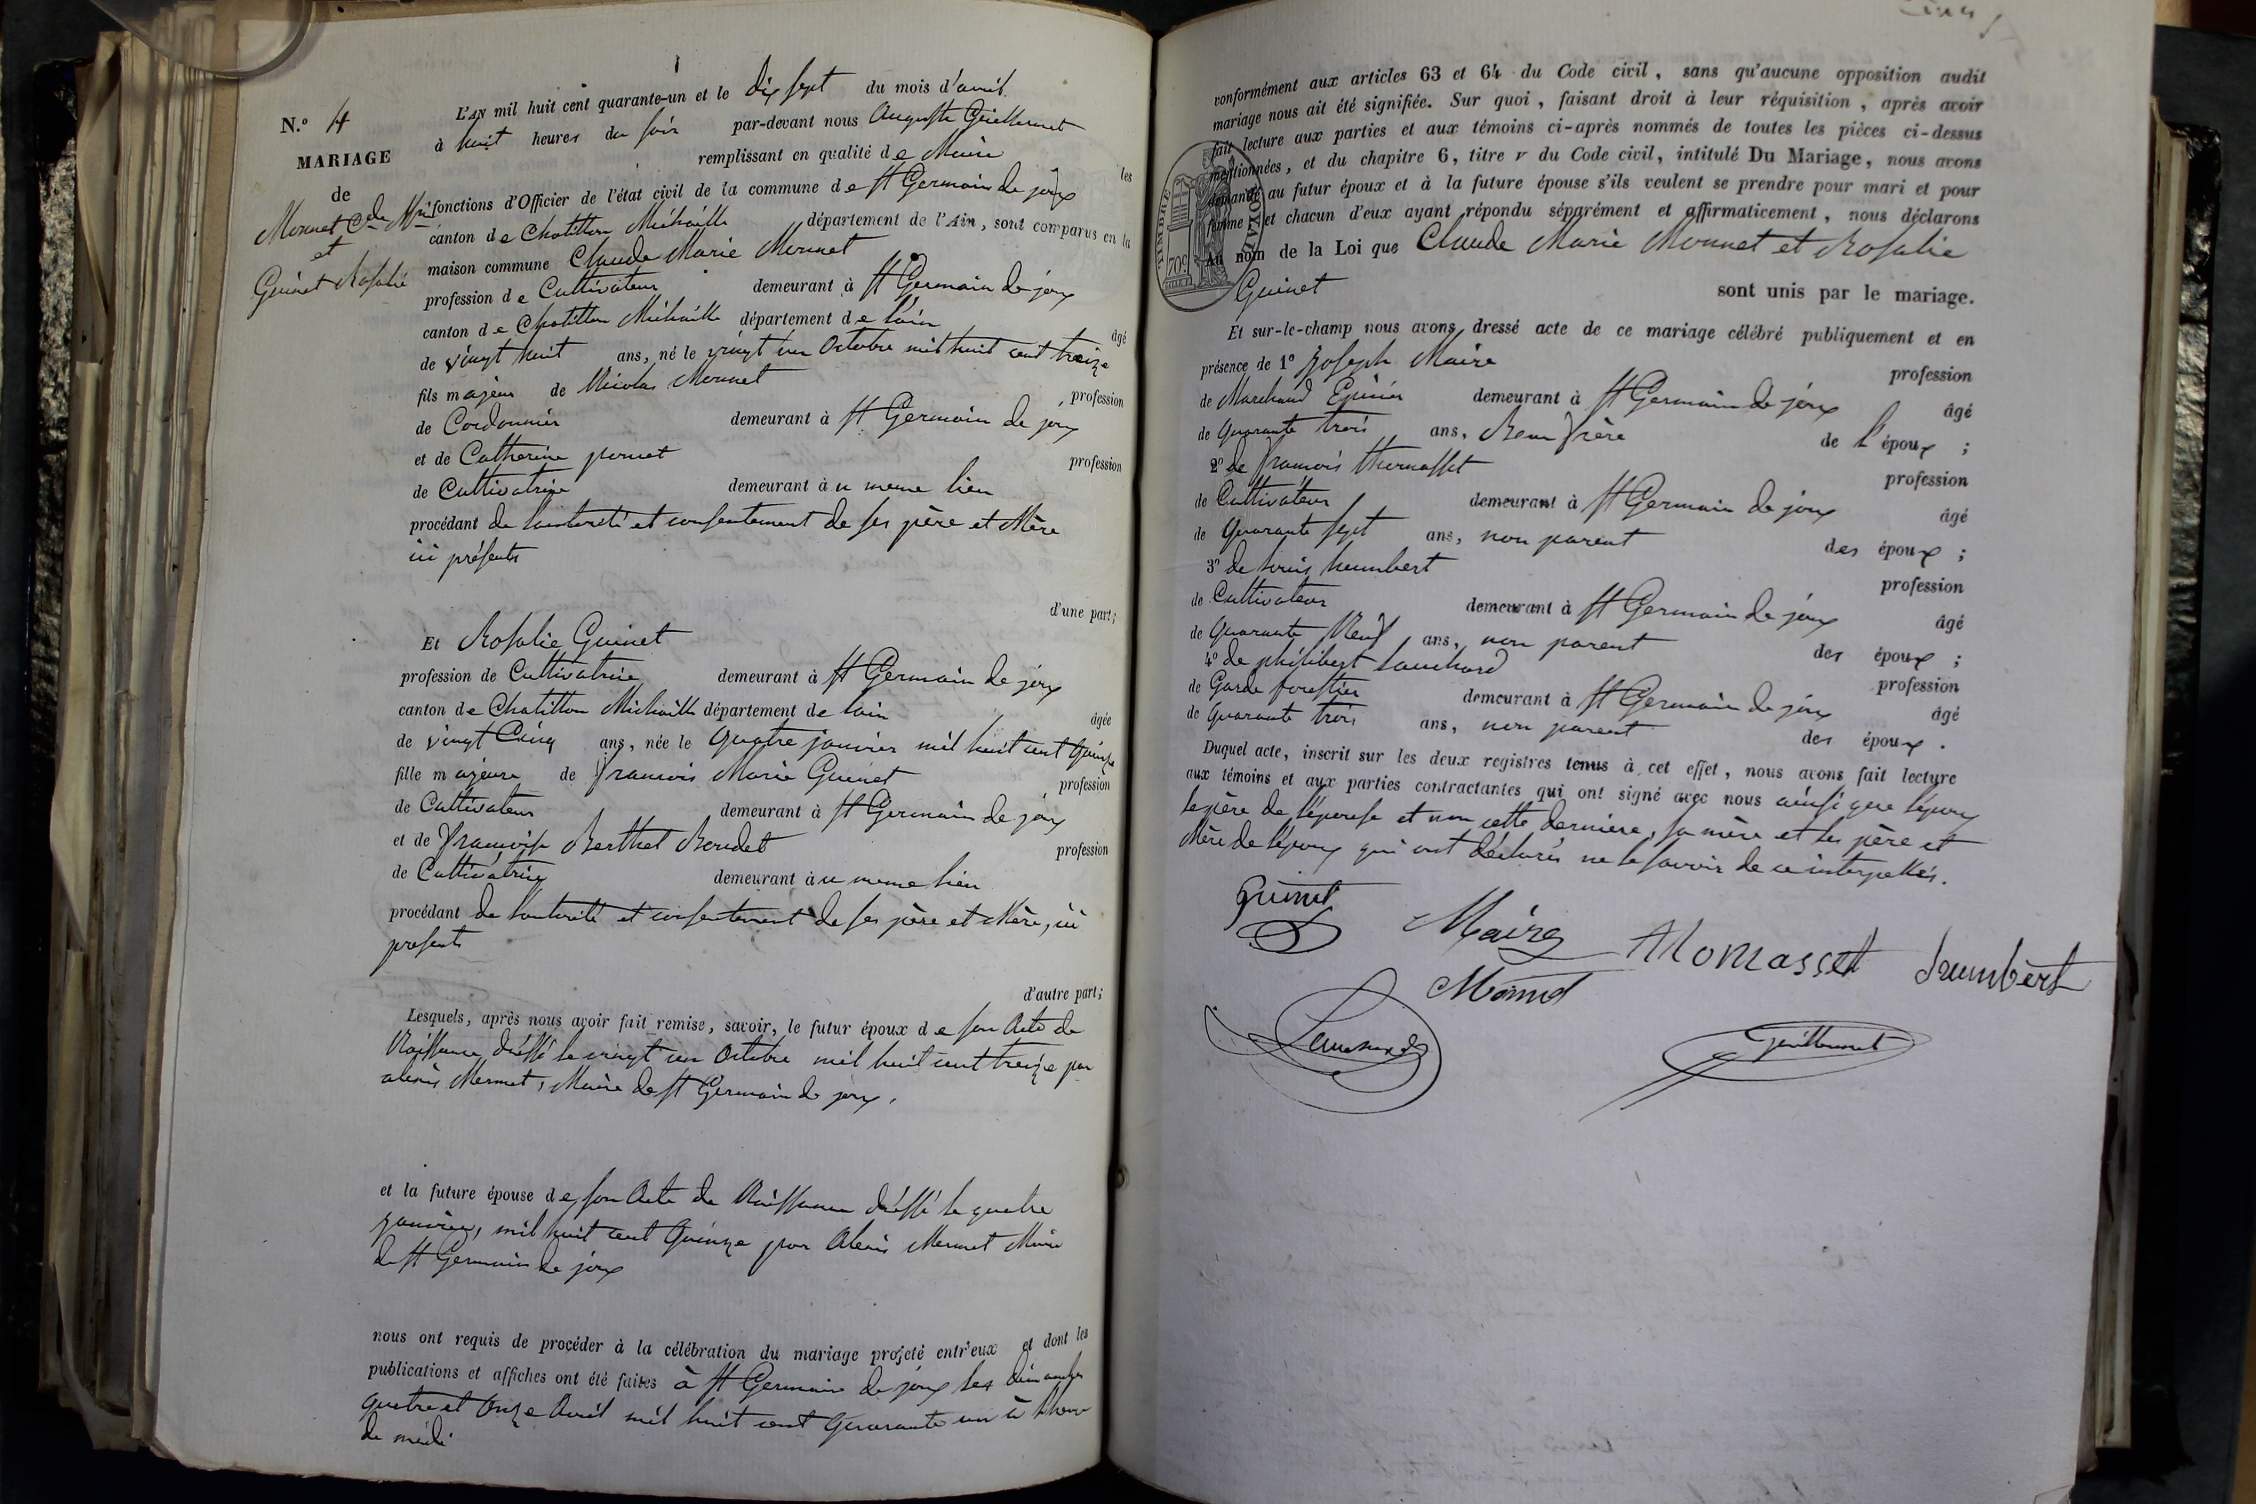 N.º 4
MARIAGE
de
Monnet Cde Mrie
et
Guinet Rosalie
L'AN mil huit cent quarante-un et le dix sept du mois d'avril
à huit heures du soir par-devant nous Auguste Guillermet
remplissant en qualité de Maire les
fonctions d'Officier de l'état civil de la commune de St Germain de joux
canton de Chatillon Michaille département de l'Ain, sont comparus en la
maison commune Claude Marie Monnet
profession de Cultivateur demeurant à St Germain de joux
canton de Chatillon Michaille département de lain
âgé
de vingt huit ans, né le vingt un Octobre mil huit cent treize
fils majeur de Nicolas Monnet
profession
de Cordonnier demeurant à St Germain de joux
et de Catherine pernet
profession
de Cultivatrice demeurant à u meme lieu
procédant de lautorité et consentement de ses père et Mère
ici présents
d'une part;
Et Rosalie Guinet
profession de Cultivatrice demeurant à St Germain de joux
canton de Chatillon Michaille département de lain
âgée
de vingt Cinq ans, née le quatre janvier mil huit cent quinze
fille majeure de francois Marie Guinet
profession
de Cultivateur demeurant à St Germain de joux
et de francoise Berthet Bondet
profession
de Cultivatrice demeurant à u meme lieu
procédant de lautorité et consentement de ses père et Mère, ici
presents
d'autre part;
Lesquels, après nous avoir fait remise, savoir, le futur époux de son Acte de
Naissance dréssé le vingt un Octobre mil huit cent treize par
alexis Mermet, Maire de St Germain de joux,
et la future épouse de son Acte de Naissance dréssé le quatre
janvier, mil huit cent quinze par Alexis Mermet Maire
de St Germain de joux
nous ont requis de procéder à la célébration du mariage projeté entr'eux et dont les
publications et affiches ont été faites à St Germain de joux les dimanches
quatre et Onze Avril mil huit cent quarante un à lheure
de midi
conformément aux articles 63 et 64 du Code civil, sans qu'aucune opposition audit
mariage nous ait été signifiée. Sur quoi, faisant droit à leur réquisition, après avoir
fait lecture aux parties et aux témoins ci-après nommés de toutes les pièces ci-dessus
mentionnées, et du chapitre 6, titre v du Code civil, intitulé Du Mariage, nous avons
demandé au futur époux et à la future épouse s'ils veulent se prendre pour mari et pour
femme et chacun d'eux ayant répondu séparément et affirmaticement, nous déclarons
Au nom de la Loi que Claude Marie Monnet et Rosalie
Guinet sont unis par le mariage.
TIMBRE ROYAL
70c
Et sur-le-champ nous avons dressé acte de ce mariage célébré publiquement et en
présence de 1º Joseph Maire
profession
de Marchand Epicier demeurant à St Germain de joux
âgé
de quarante trois ans, Beau frère de l'époux;
2º de francois thomasset
profession
de Cultivateur demeurant à St Germain de joux
âgé
de quarante sept ans, non parent des époux;
3º de louis humbert
profession
de Cultivateur demeurant à St Germain de joux
âgé
de quarante Neuf ans, non parent des époux;
4º de philibert
profession
de Garde forestier demeurant à St Germain de joux
âgé
de quarante trois ans, non parent des époux.
Duquel acte, inscrit sur les deux registres tenus à cet effet, nous avons fait lecture
aux témoins et aux parties contractantes qui ont signé avec nous ainsi que lépoux
le père de lépouse et non cette derniere, sa mère et les père et
Mère de lépoux qui ont déclarés ne le savoir de ce interpellés.
Guinet
Maire
Thomasset
humbert
Monnet
Guillermet